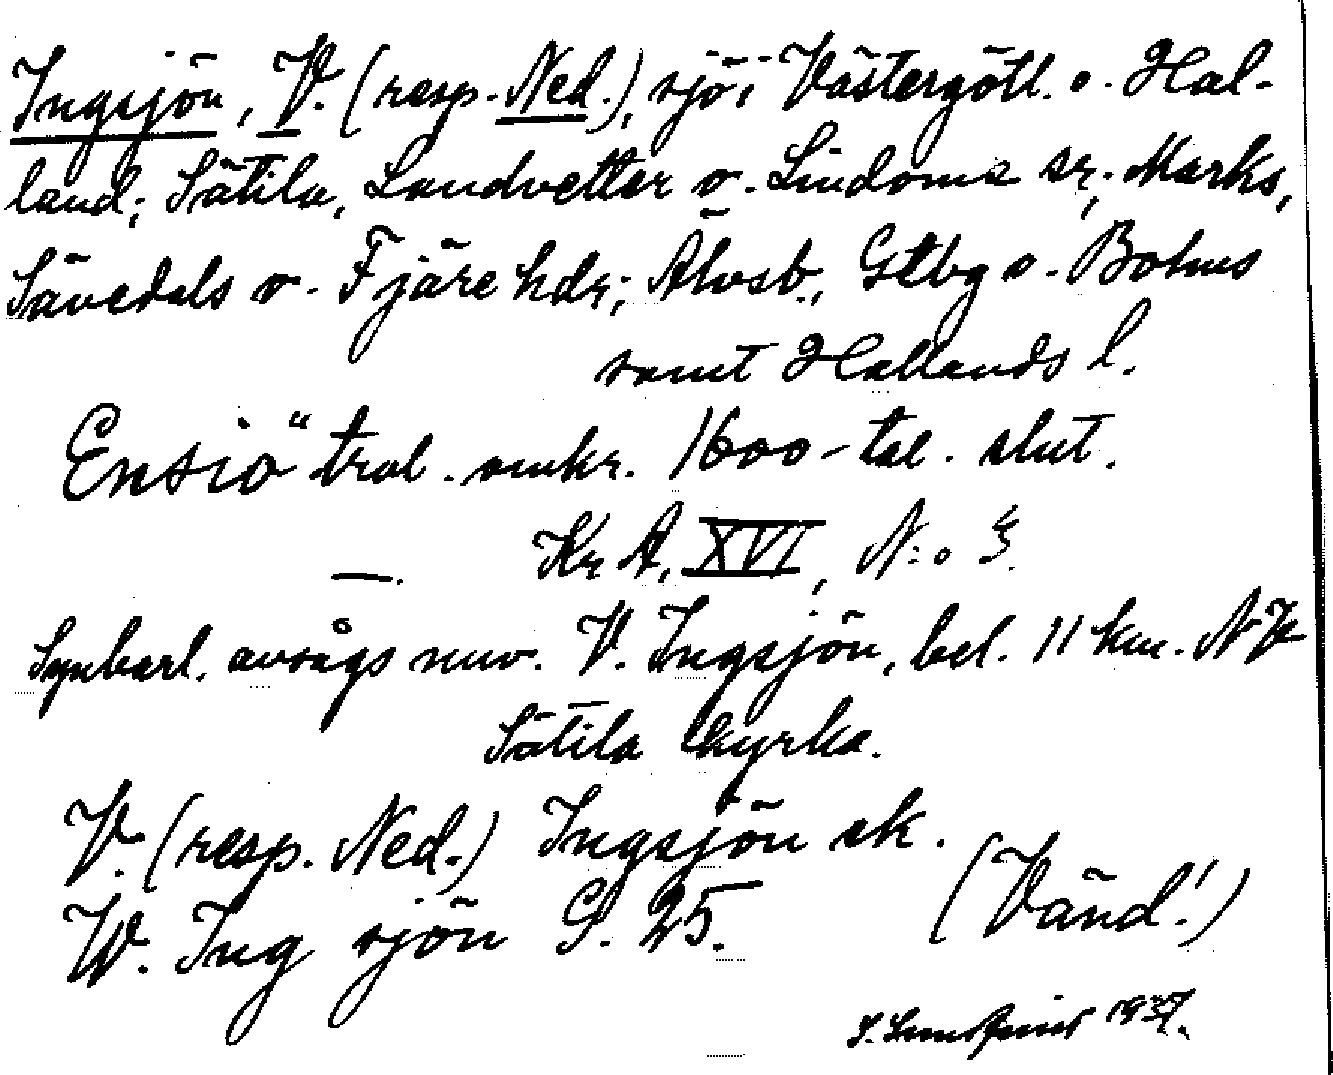 Ingsjön, V. (resp. Ned.), sjö i Västergötl. o. Hal-
land; Sätila, Landvetter o. Lindome sr; Marks,
Sävedals o. Fjäre hdr; Älvsb., Gtbg o. Bohus
samt Hallands l.
"Ensiö" trol. omkr. 1600-tal. slut.
—. Kr A, XVI, N:o 3.
Synbarl. avsågs nuv. V. Ingsjön, bel. 11 km. NV
Sätila kyrka.
V. (resp. Ned.) Ingsjön ek.
W. Ing sjön G. 25.
(Vänd!)
1937.